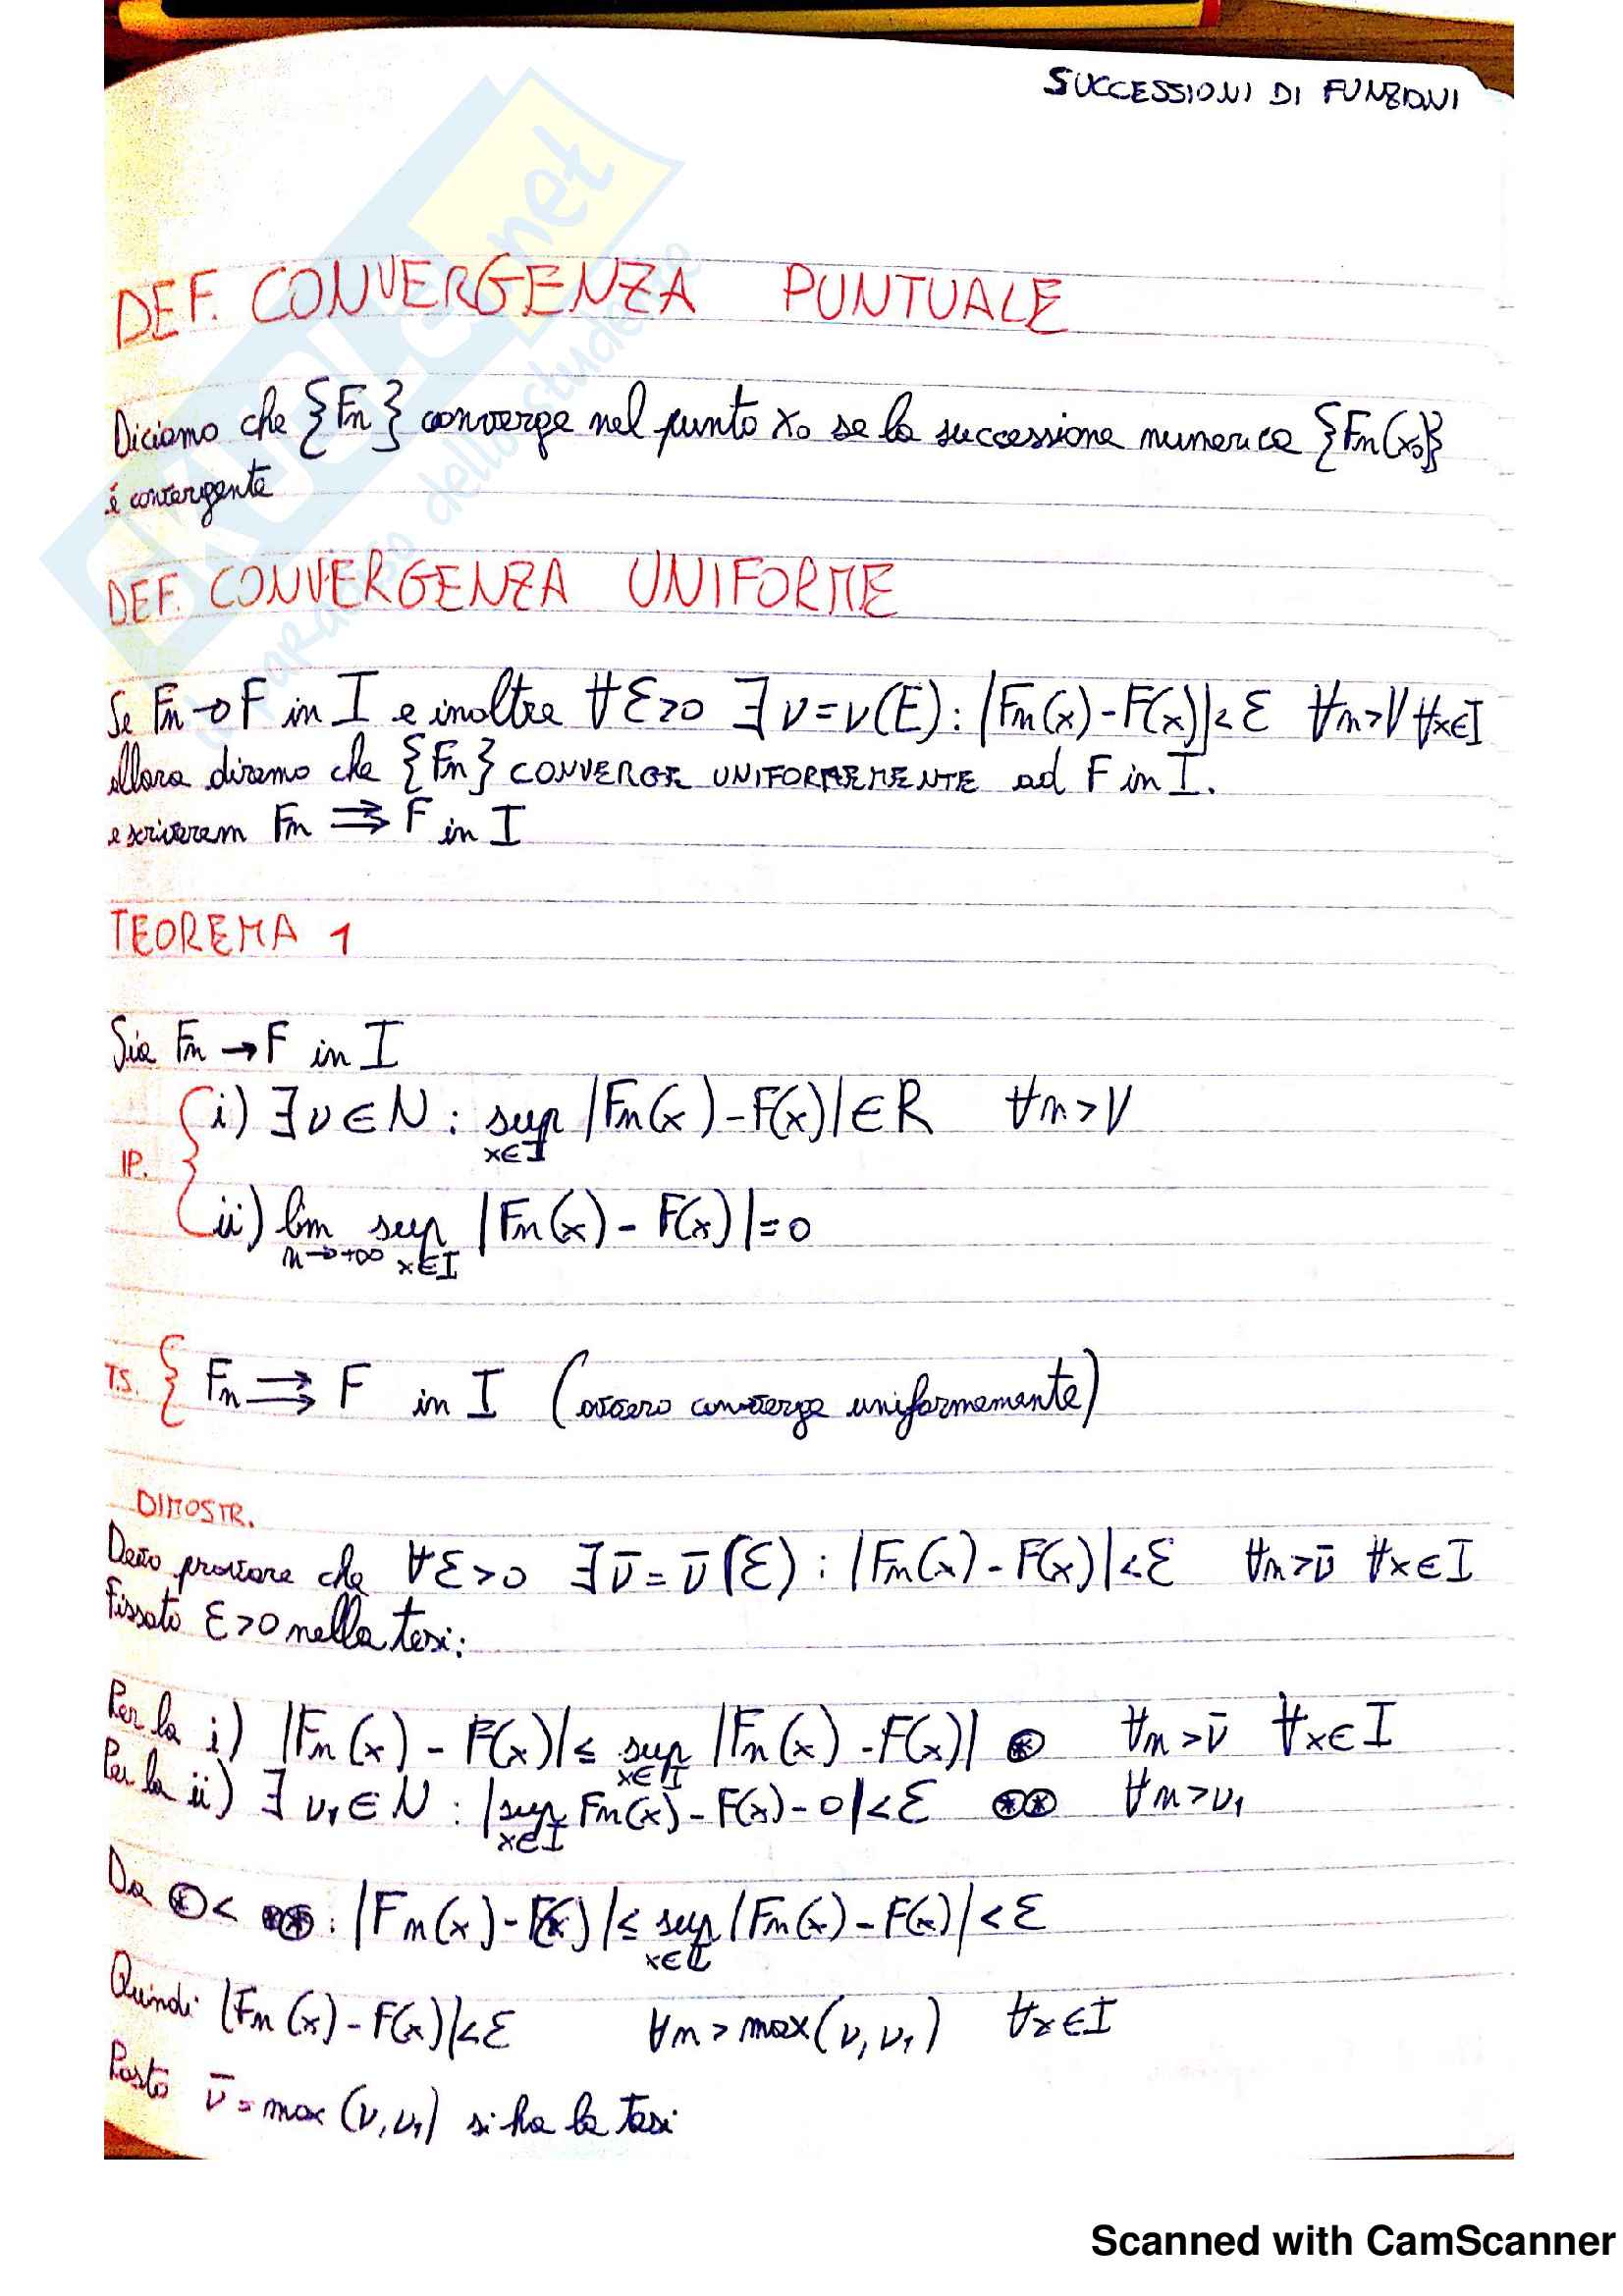 SUCCESSIONI DI FUNZIONI
SKUOLA.net
il paradiso dello studente
DEF. CONVERGENZA PUNTUALE
Diciamo che {Fn} converge nel punto x₀ se la successione numerica {Fn(x₀)}
è convergente
DEF. CONVERGENZA UNIFORME
Se Fn → F in I e inoltre ∀ε>0 ∃ν=ν(ε): |Fn(x)-F(x)|<ε ∀n>ν ∀x∈I
allora diremo che {Fn} CONVERGE UNIFORMEMENTE ad F in I.
e scriverem Fn ⇉ F in I
TEOREMA 1
Sia Fn → F in I
IP. { i) ∃ν∈N : sup x∈I |Fn(x)-F(x)|∈R ∀n>ν
ii) lim n→+∞ sup x∈I |Fn(x)-F(x)|=0
TS. { Fn ⇉ F in I (ovvero converge uniformemente)
DIMOSTR.
Devo provare che ∀ε>0 ∃ν̄=ν̄(ε) : |Fn(x)-F(x)|<ε ∀n>ν̄ ∀x∈I
Fissato ε>0 nella tesi:
Per la i) |Fn(x)-F(x)| ≤ sup x∈I |Fn(x)-F(x)| ⊛ ∀n>ν̄ ∀x∈I
Per la ii) ∃ν₁∈N : |sup x∈I Fn(x)-F(x)-0|<ε ⊛⊛ ∀n>ν₁
Da ⊛ < ⊛⊛ : |Fn(x)-F(x)| ≤ sup x∈I |Fn(x)-F(x)| < ε
Quindi |Fn(x)-F(x)|<ε ∀n > max(ν,ν₁) ∀x∈I
Posto ν̄ = max (ν,ν₁) si ha la tesi
Scanned with CamScanner